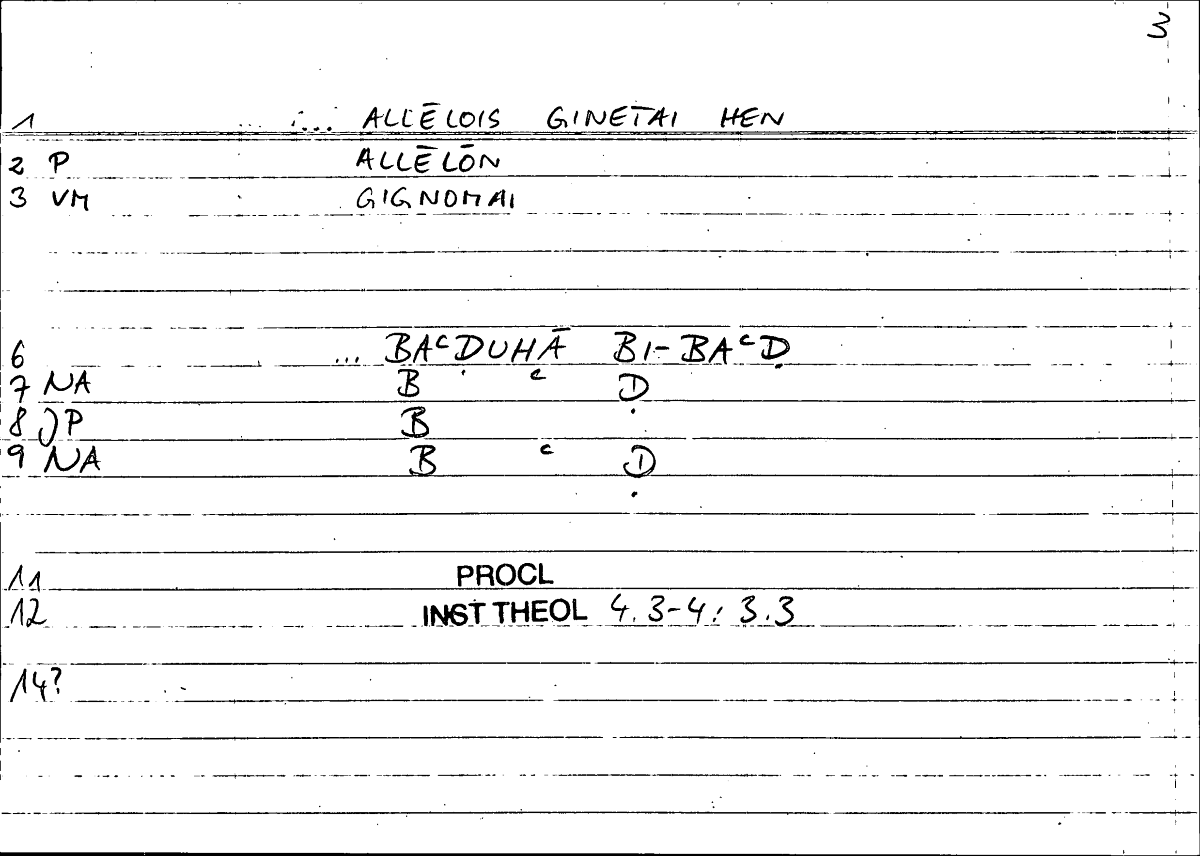 3
1 ... ... ALLĒLOIS GINETAI HEN
2 P ALLĒLŌN
3 VM GIGNOMAI
6 ... BAᶜḌUHĀ BI-BAᶜḌ
7 NA B ᶜ Ḍ
8 JP B
9 NA B ᶜ Ḍ
11 PROCL
12 INST THEOL 4.3-4: 3.3
14?